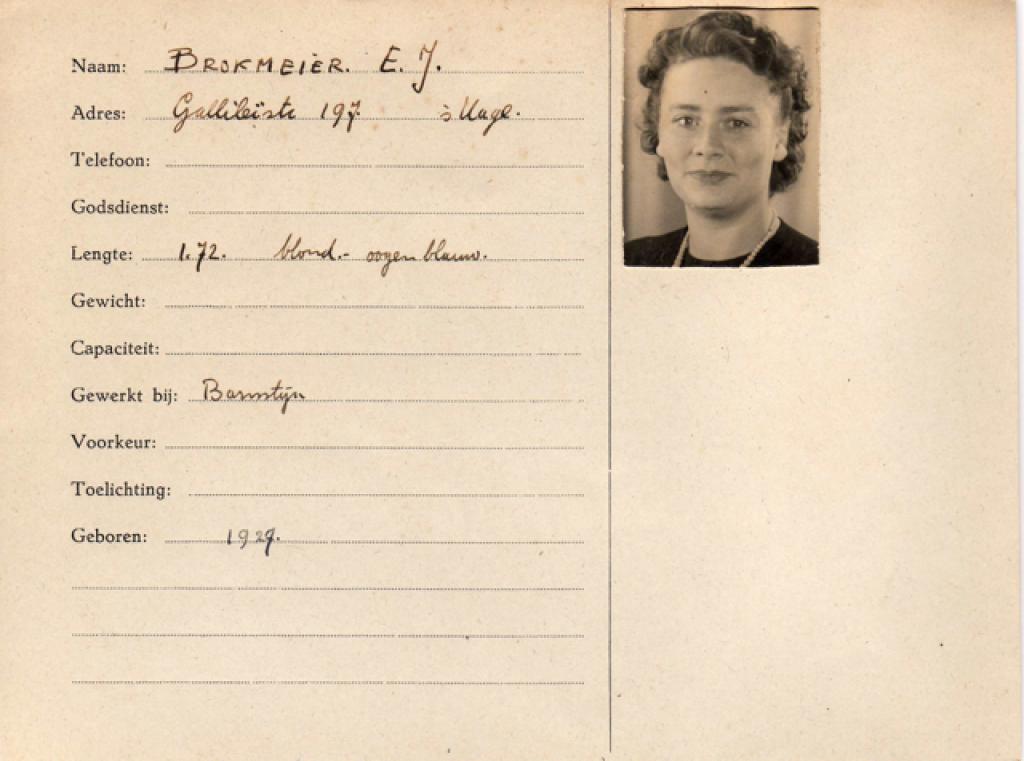 Naam: BROKMEIER. E. J.
Adres: Gallileïstr 197. 's Hage.
Telefoon:
Godsdienst:
Lengte: 1.72. blond.- oogen blauw.
Gewicht:
Capaciteit:
Gewerkt bij:
Voorkeur:
Toelichting:
Geboren: 1927.